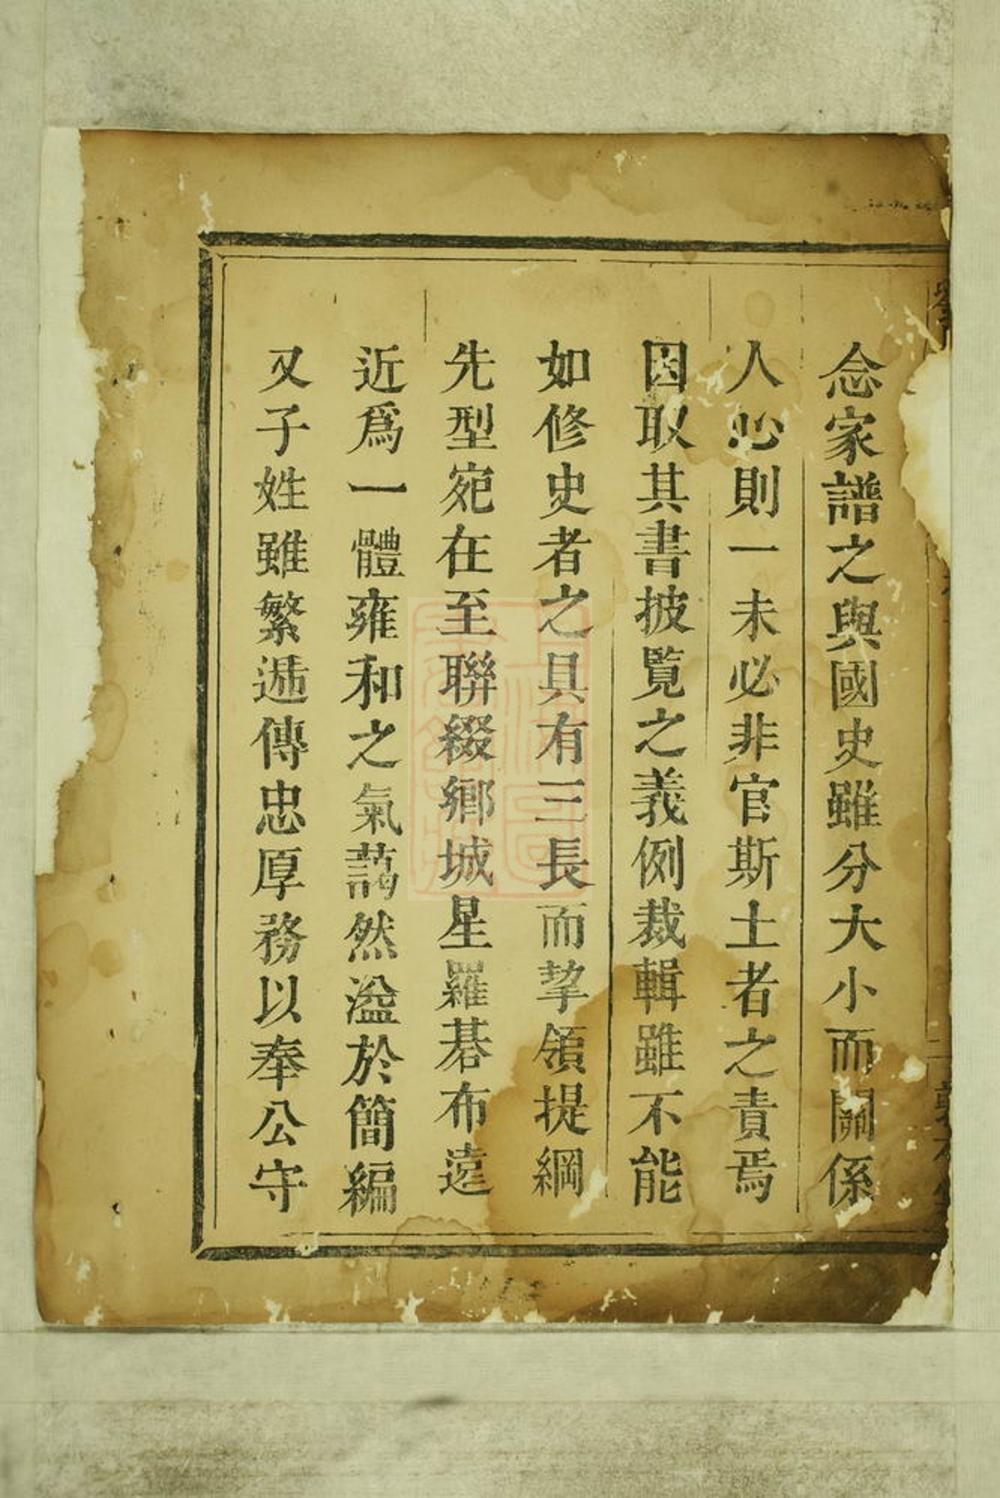 念家譜之與國史雖分大小而關係
人心則一未必非官斯土者之責焉
因取其書披覽之義例裁輯雖不能
如修史者之具有三長而挈領提綱
先型宛在至聯綴鄉城星羅碁布遠
近爲一體雍和之氣藹然溢於簡編
又子姓雖繁遞傳忠厚務以奉公守